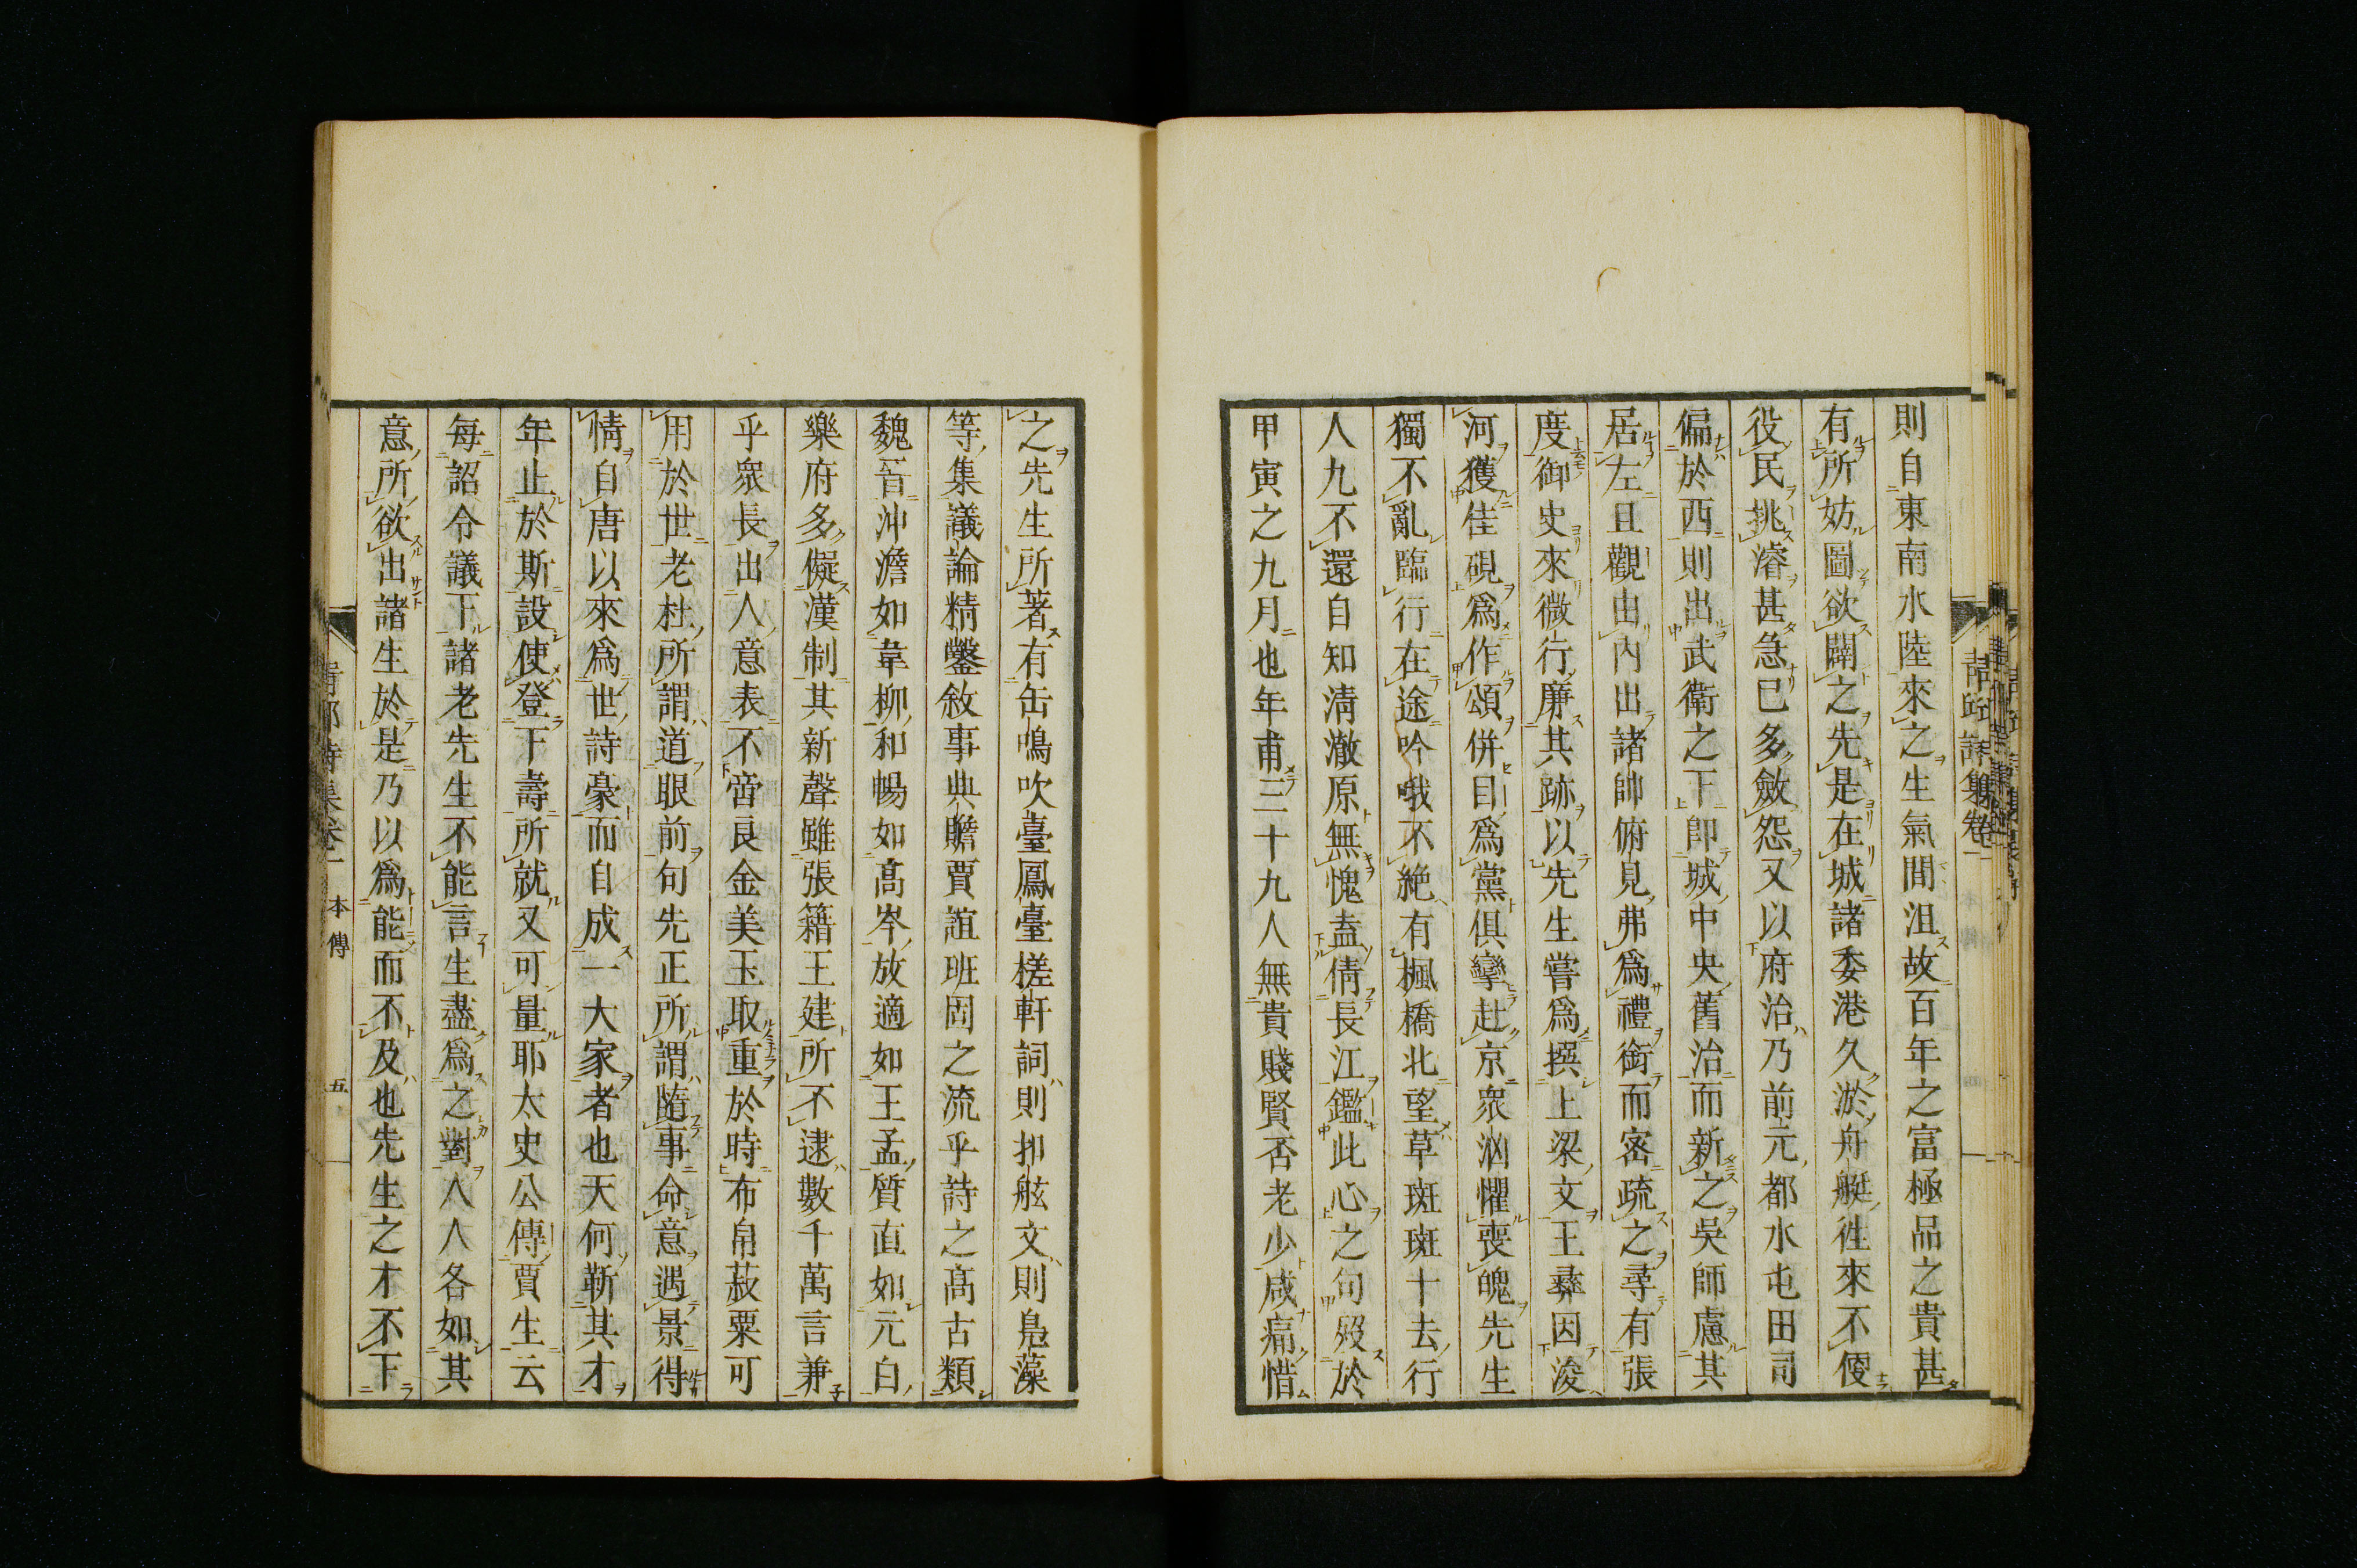 則自東南水陸來之生氣間沮故百年之富極品之貴甚
有所妨圖欲闢之先是在城諸委港久淤舟艇徃來不便
役民挑濬甚急已多斂怨又以府治乃前元都水屯田司
偏於西則出武衛之下卽城中央舊治而新之吳師慮其
居左且觀由內出諸帥俯見弗爲禮銜而密疏之尋有張
度御史來微行廉其跡以先生嘗爲撰上梁文王彝因浚
河獲佳硯爲作頌併目爲黨俱攣赴京衆洶懼喪魄先生
獨不亂臨行在途吟哦不絶有楓橋北望草斑斑十去行
人九不還自知淸澈原無愧盍倩長江鑑此心之句歿於
甲寅之九月也年甫三十九人無貴賤賢否老少咸痛惜
之先生所著有缶鳴吹臺鳳臺槎軒詞則扣舷文則鳧藻
等集議論精鑿敘事典贍賈誼班固之流乎詩之高古類
魏晉沖澹如韋柳和暢如高岑放適如王孟質直如元白
樂府多儗漢制其新聲雖張籍王建所不逮數千萬言兼
乎衆長出人意表不啻良金美玉取重於時布帛菽粟可
用於世老杜所謂道眼前句先正所謂隨事命意遇景得
情自唐以來爲世詩豪而自成一大家者也天何靳其才
年止於斯設使登下壽所就又可量耶太史公傳賈生云
每詔令議下諸老先生不能言生盡爲之對人人各如其
意所欲出諸生於是乃以爲能而不及也先生之才不下
本傳
五